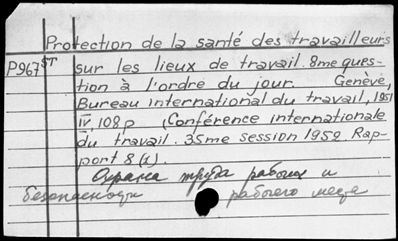 Protection de la santé des travailleurs
P967 ST sur les lieux de travail. 8me ques-
tion à l'ordre du jour. Genève,
Bureau international du travail, 1951
IV, 108 p (Conférence internationale
du travail. 35me session 1952. Rap-
port 8(1).
Охрана труда рабочих и
безопасность рабочего места